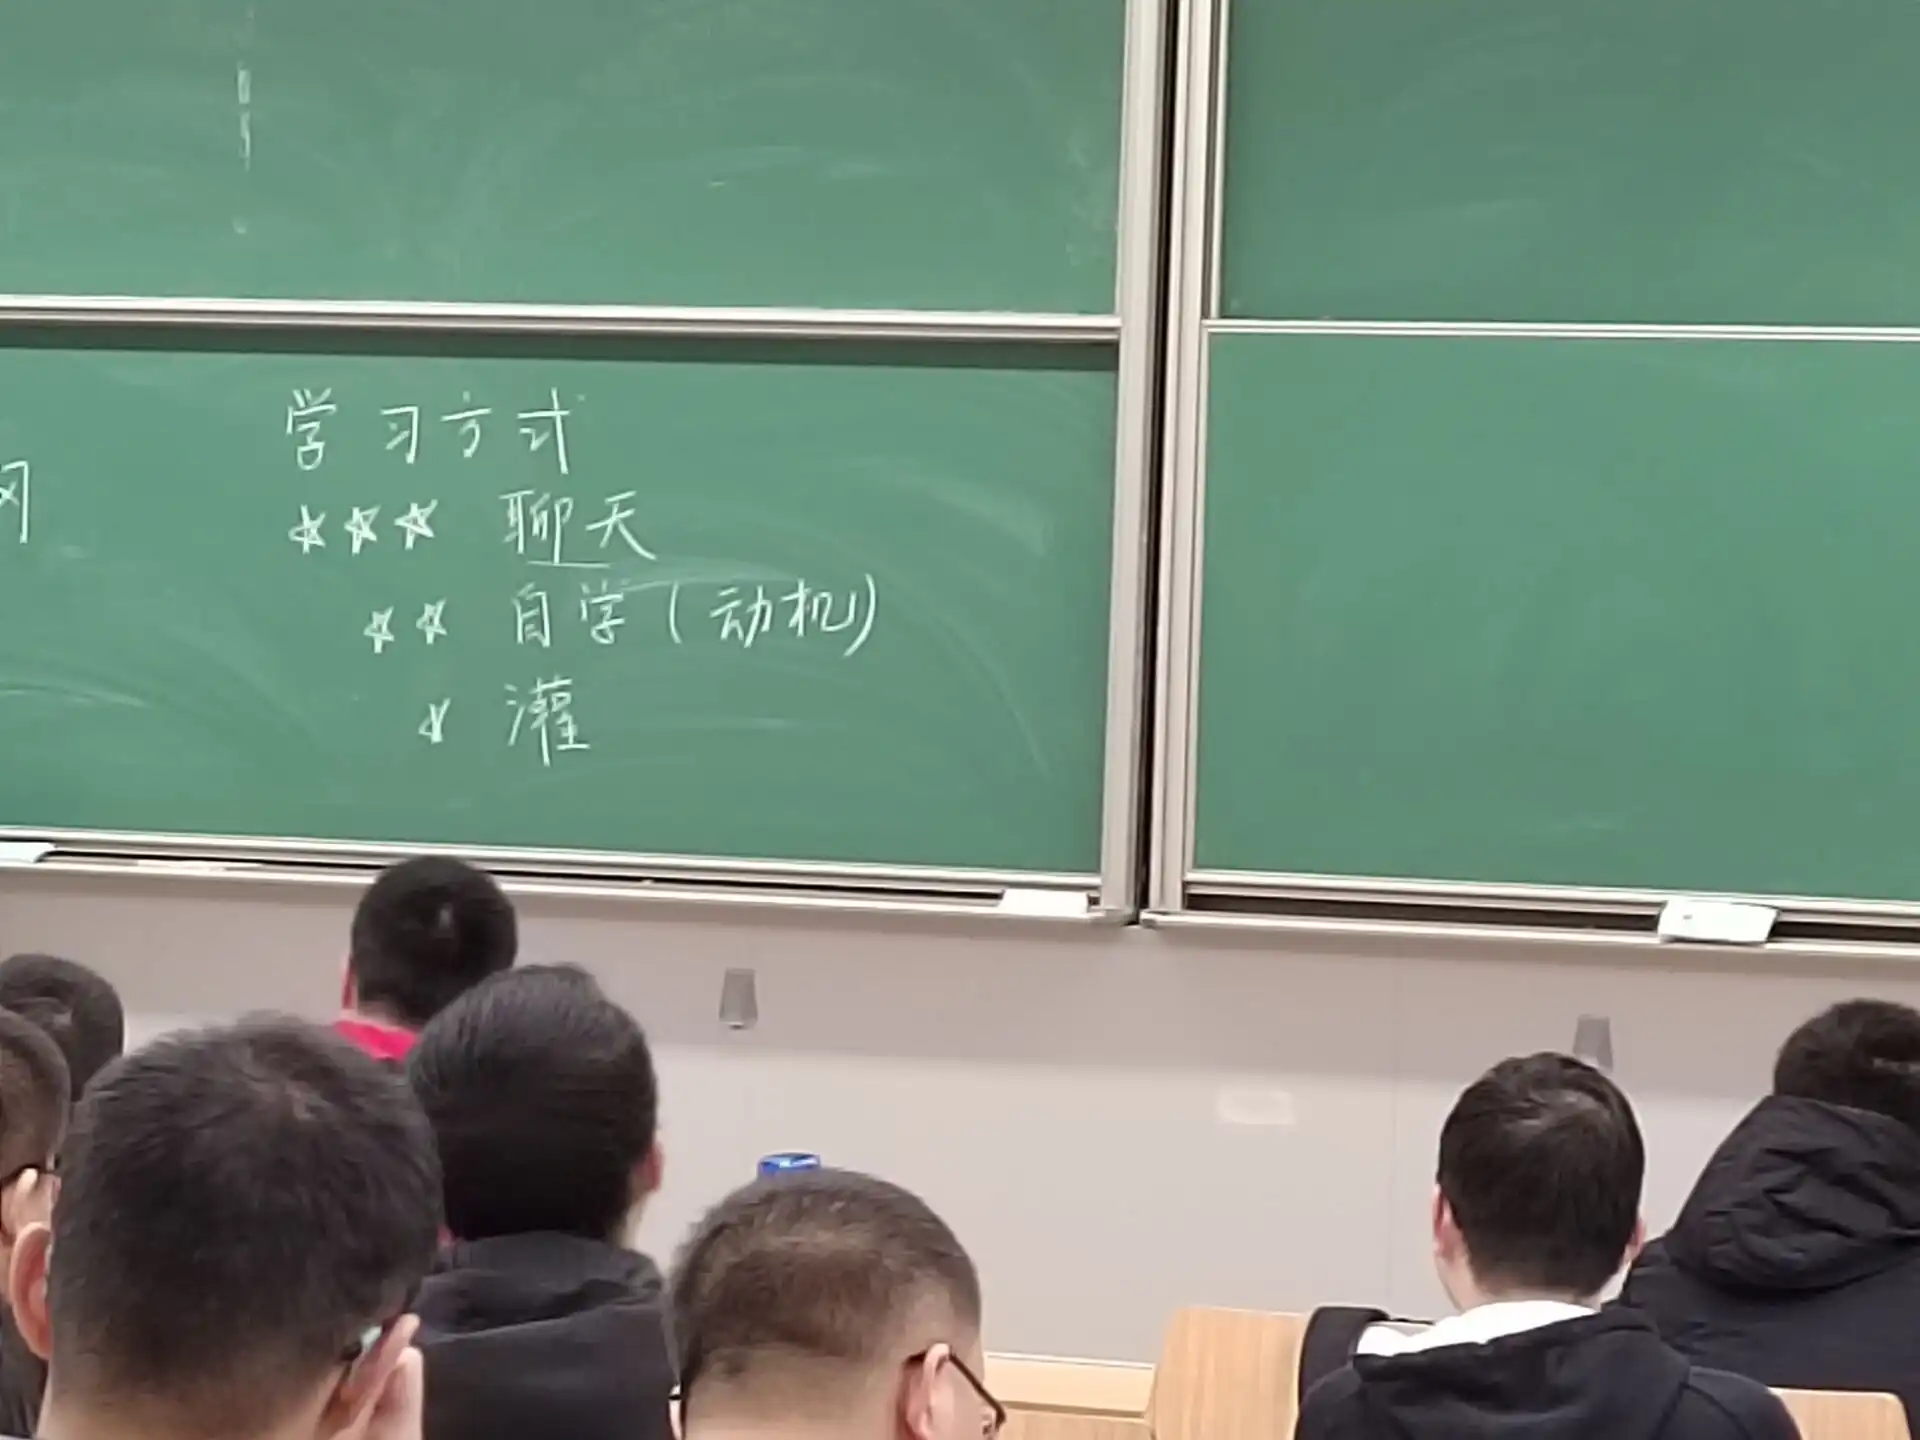 学习方式
☆☆☆ 聊天
☆☆ 自学(动机)
☆ 灌